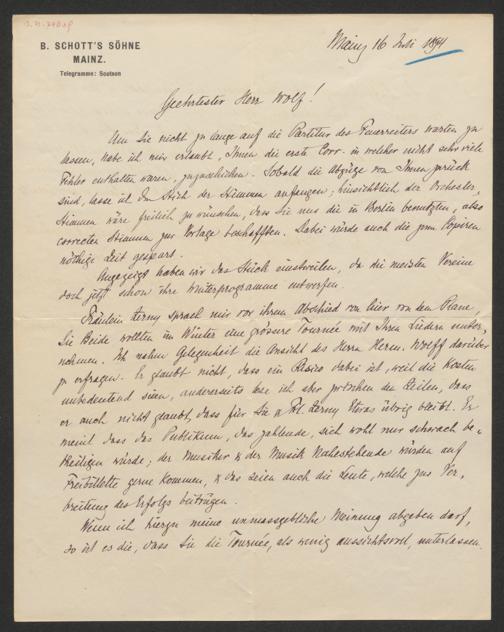 B. SCHOTT'S SÖHNE
MAINZ.
Telegramme: Scotson
Mainz 16 Juli 1894
Geehrtester Herr Wolf!
Um Sie nicht zu lange auf die Partitur des Feuerreiters warten zu
lassen, habe ich mir erlaubt, Ihnen die erste Corr. in welcher nicht sehr viele
Fehler enthalten waren, zuzuschicken. Sobald die Abzüge von Ihnen zurück
sind, lasse ich den Stich der Stimmen anfangen; hinsichtlich der Orchester-
stimmen wäre freilich zu wünschen, dass Sie uns die in Berlin benutzten, also
correcten Stimmen zur Vorlage beschafften. Dabei würde auch die zum Copiren
nöthige Zeit gespart.
Angezeigt haben wir das Stück einstweilen, da die meisten Vereine
doch jetzt schon ihre Winterprogramme entwerfen.
Fräulein Zerny sprach mir vor ihrem Abschied von hier von dem Plane,
Sie Beide wollten im Winter eine grössere Tournée mit Ihren Liedern unter-
nehmen. Ich nahm Gelegenheit die Ansicht des Herrn Herm. Wolff darüber
zu erfragen. Er glaubt nicht, dass ein Risico dabei ist, weil die Kosten
unbedeutend seien, andererseits lese ich aber zwischen den Zeilen, dass
er auch nicht glaubt, dass für Sie u Frl. Zerny etwas übrig bleibt. Er
meint dass das Publikum, das zahlende, sich wohl nur schwach be-
theiligen würde; der Musiker & der Musik Nahestehende würden auf
Freibillette gerne kommen, & das seien auch die Leute, welche zur Ver-
breitung des Erfolgs beitrügen.
Wenn ich hierzu meine unmassgebliche Meinung abgeben darf,
so ist es die, dass Sie die Tournée, als wenig aussichtsvoll, unterlassen.